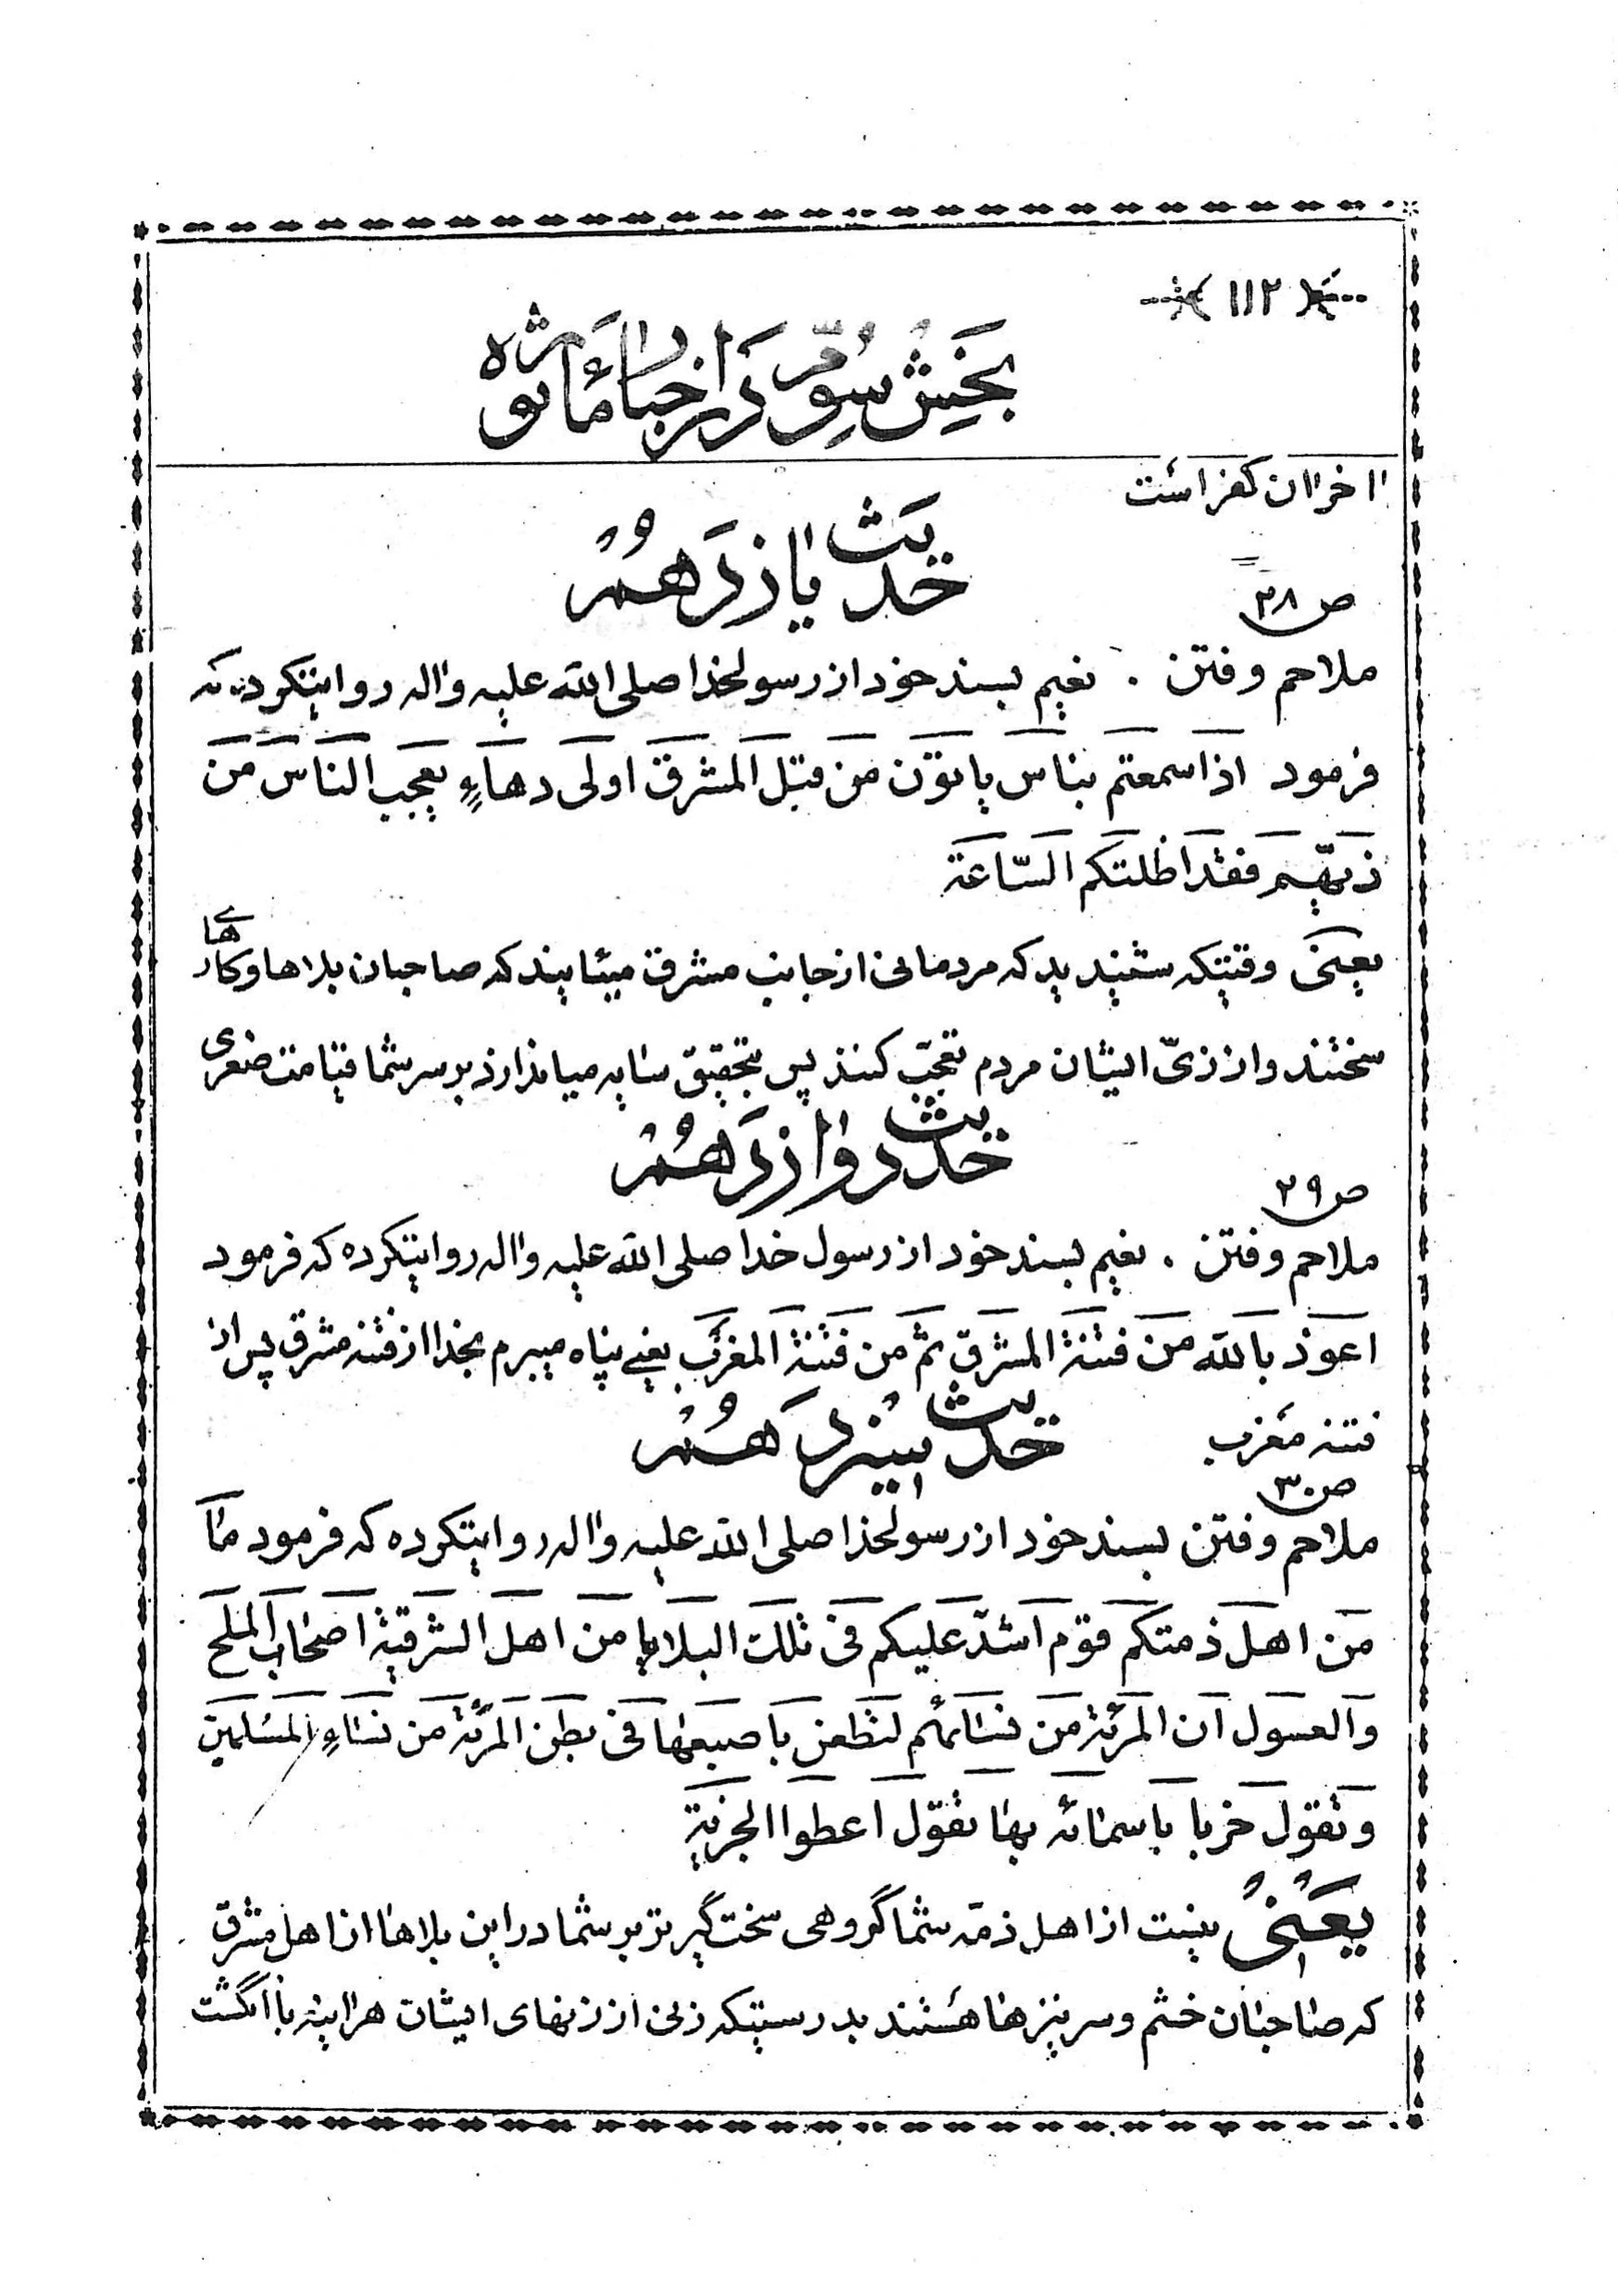 ۱۱۲
بخش سوم در اخبار مأثوره
اخر ان کفر است
حدیث یازدهم
ص ۲۸
ملاحم و فتن . نعیم بسند خود از رسولخدا صلی الله علیه واله روایتکرده که
فرمود اذا سمعتم بناس یاتون من قبل المشرق اولی دهاء یعجب الناس من
زیهم فقد اظلتکم الساعة
یعنی وقتیکه شنیدید که مردمانی از جانب مشرق میآیند که صاحبان بلاها و کارهای
سختند و از زیّ ایشان مردم تعجب کنند پس بتحقیق سایه میاندازد بر سر شما قیامت صغری
حدیث دوازدهم
ص ۲۹
ملاحم و فتن . نعیم بسند خود از رسول خدا صلی الله علیه واله روایتکرده که فرمود
اعوذ بالله من فتنة المشرق ثم من فتنة المغرب یعنی پناه میبرم بخدا از فتنه مشرق پس از
فتنه مغرب
حدیث سیزدهم
ص ۳۰
ملاحم و فتن بسند خود از رسولخدا صلی الله علیه واله روایتکرده که فرمود ما
من اهل ذمتکم قوم اشد علیکم فی تلک البلایا من اهل الشرقیة اصحاب الملح
والعسول ان المرئة من نسائهم لتطعن باصبعها فی بطن المرئة من نساء المسلمین
وتقول خربا باسمائه بها تقول اعطوا الجزیة
یعنی نیست از اهل ذمه شما گروهی سخت گیرتر بر شما در این بلاها از اهل مشرق
که صاحبان خشم و سرنیزها هستند بدرستیکه زنی از زنهای ایشان هراینه با انگشت